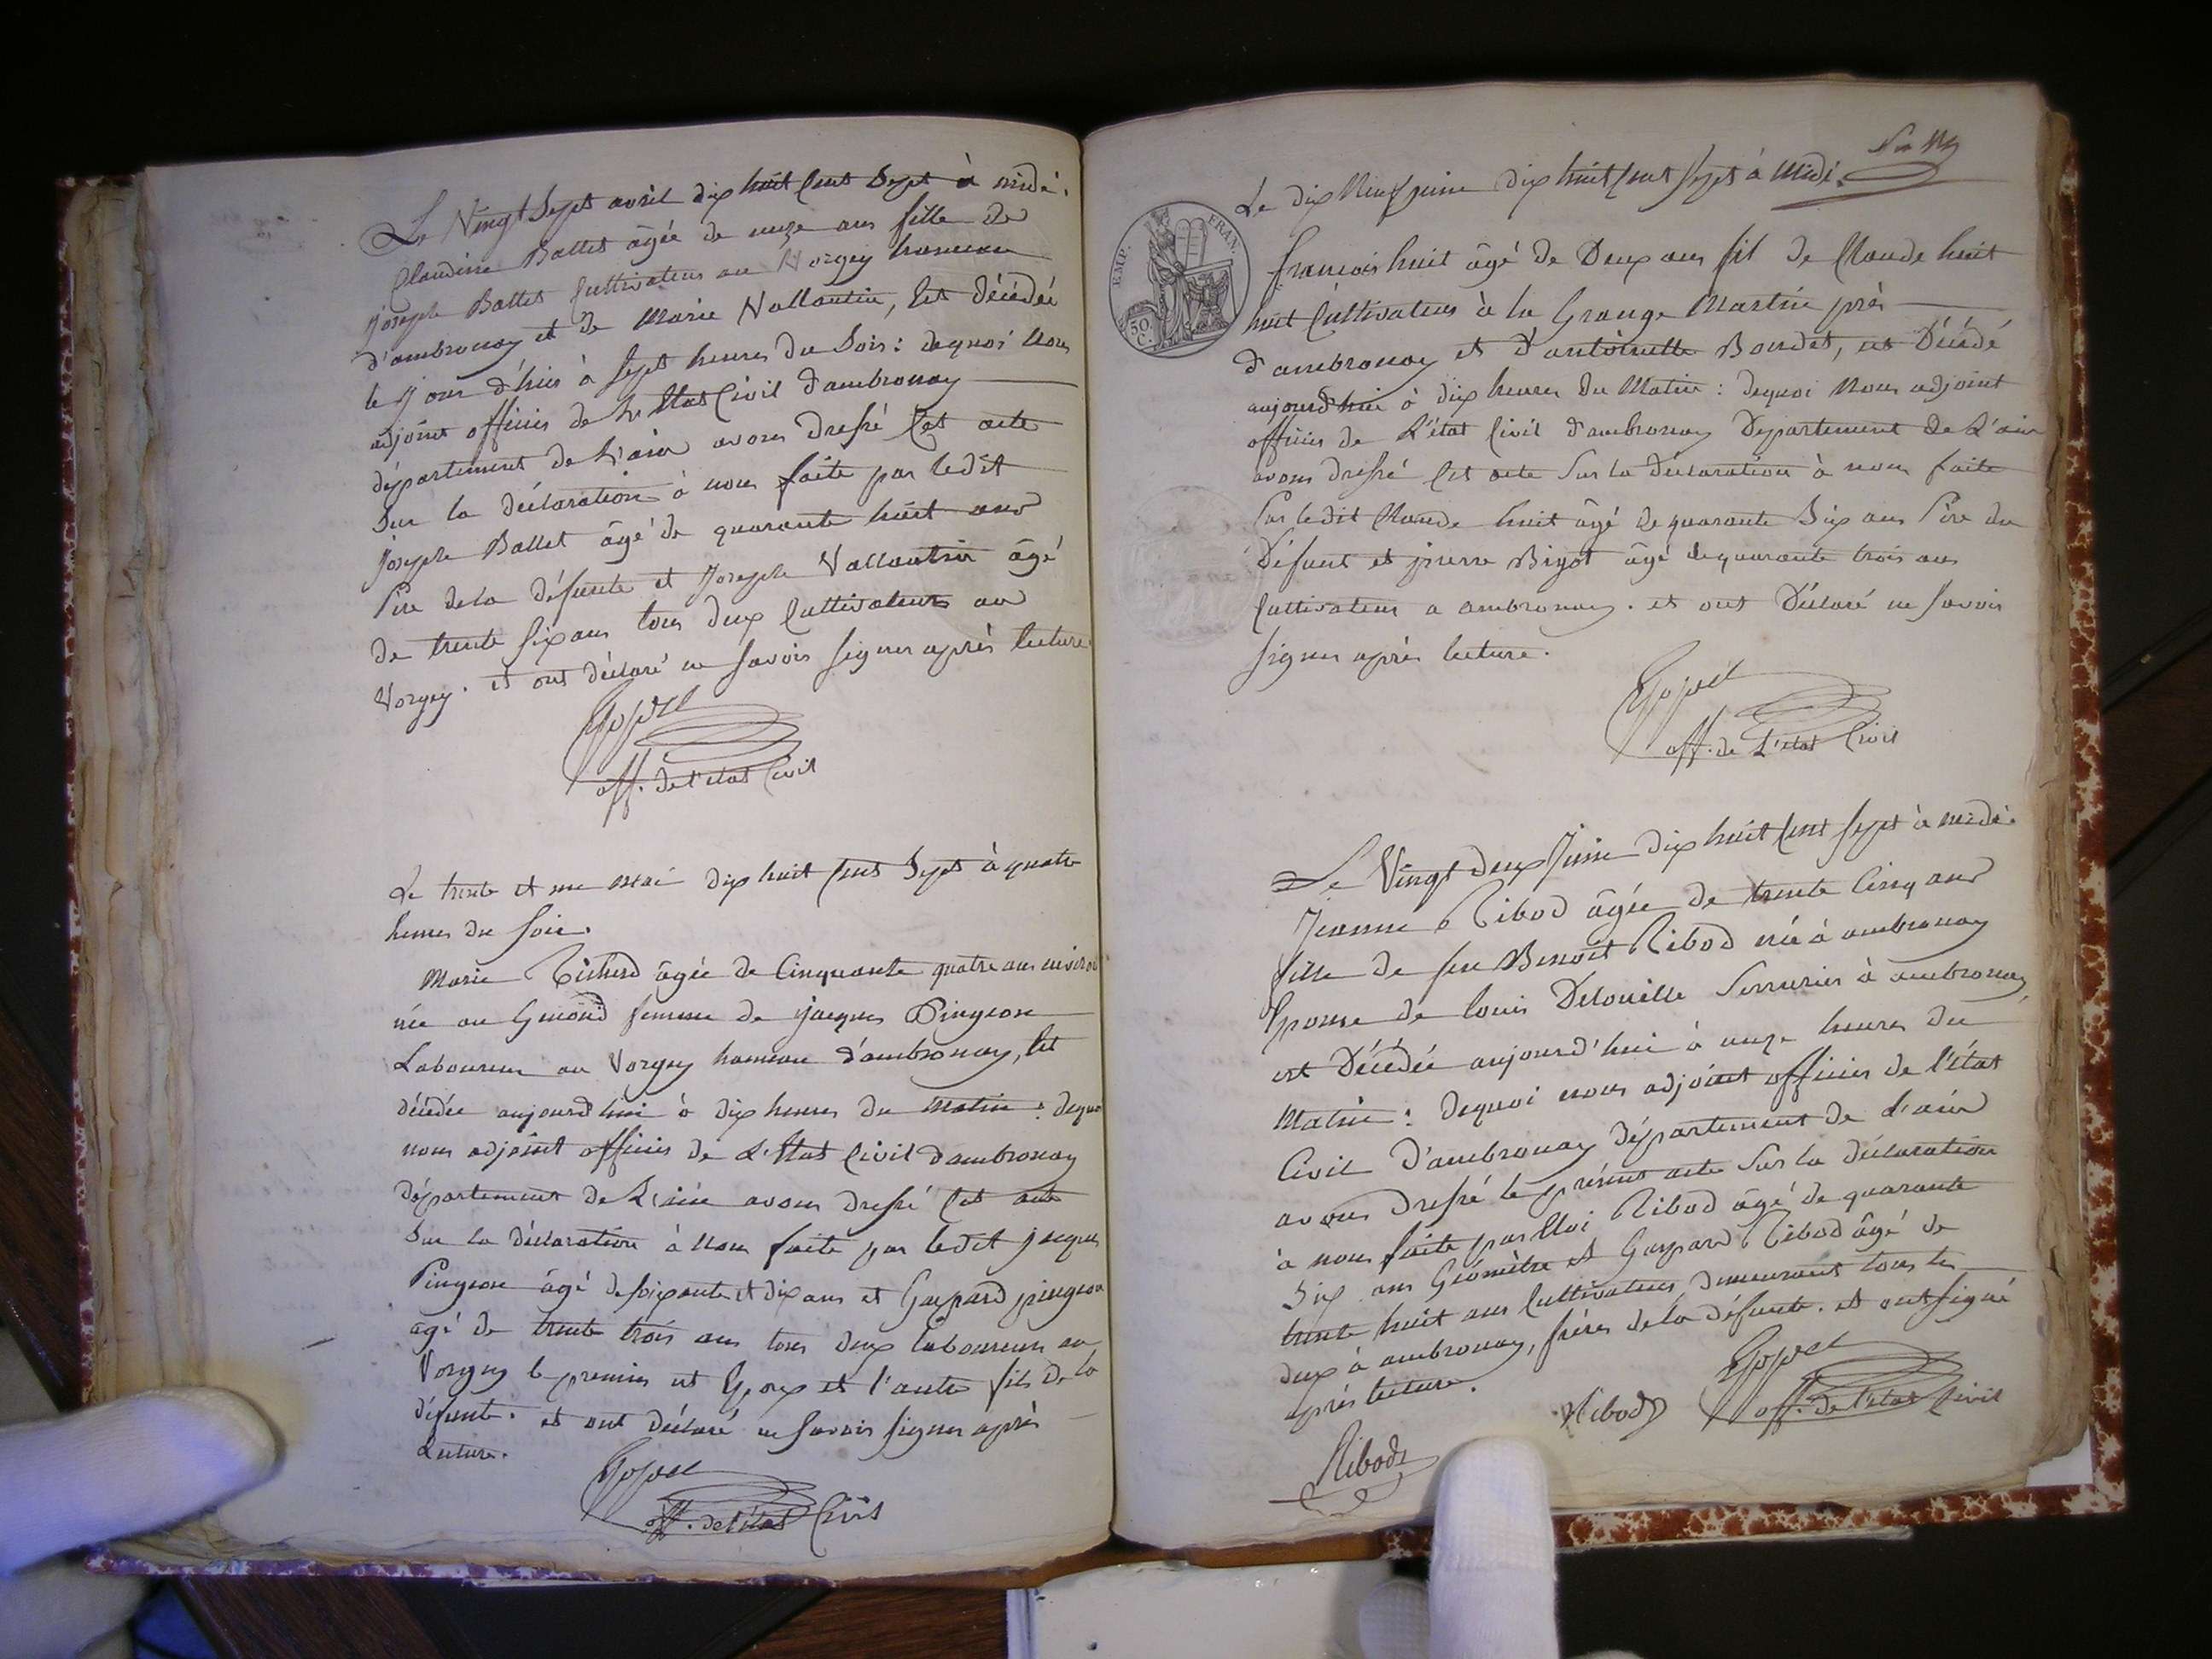 Le Vingt Sept avril dix huit Cent Sept à midi.
Claudine Ballet âgée de onze ans fille de
Joseph Ballet Cultivateur au Vorgey hameau
d'ambronay et de Marie Vallantin, Est décédée
le Jour d'hier à Sept heures du Soir : dequoi Nous
adjoint officier de L'Etat Civil d'ambronay
département de L'ain avons dressé Cet acte
Sur la déclaration à nous faite par ledit
Joseph Ballet âgé de quarante huit ans
Père dela défunte et Joseph Vallantin âgé
de trente Six ans tous deux Cultivateurs au
Vorgey. et ont déclaré ne Savoir Signer après lecture
off. de l'état Civil
Le trente et un Mai dix huit Cent Sept à quatre
heures du Soir.
Marie âgée de Cinquante quatre ans environ
née au femme de jacques Pingeon
Laboureur au Vorgey hameau d'ambronay, Est
décédée aujourd'hui à dix heures du Matin : dequoi
nous adjoint officier de L'Etat Civil d'ambronay
département de L'ain avons dressé Cet acte
Sur la déclaration à Nous faite par ledit jacques
Pingeon âgé de Soixante et dix ans et Gaspard pingeon
âgé de trente trois ans tous deux laboureurs au
Vorgey le premier est Epoux et l'autre fils de la
défunte. et ont déclaré ne Savoir Signer après
Lecture.
off. de l'état Civil
Le dix Neuf juin dix huit Cent Sept à Midi.
EMP. FRAN.
50. C.
francois huit âgé de Deux ans fil de Claude huit
huit Cultivateur à la Grange Martin près
d'ambronay et d'antoinette Bondet, est Décédé
aujourd'hui à dix heures du Matin : dequoi Nous adjoint
officier de L'état Civil d'ambronay Département de L'ain
avons dressé Cet acte Sur la déclaration à nous faite
Par ledit Claude huit âgé de quarante Six ans Père du
Défunt et pierre Bigot âgé de quarante trois ans
Cultivateur a ambronay. et ont Déclaré ne Savoir
Signer après lecture.
off. de L'état Civil
Le Vingt deux Juin dix huit Cent Sept à midi.
Jeanne Ribod âgée de trente Cinq ans
fille de feu Benoît Ribod née à ambronay
Epouse de louis Delouille Serrurier à ambronay
est Décédée aujourd'hui à onze heures du
Matin : dequoi nous adjoint officier de l'état
Civil D'ambronay département de L'ain
avons dressé le présent acte Sur la déclaration
à nous faite par Eloi Ribod âgé de quarante
Six ans Géomètre et Gaspard Ribod âgé de
trente huit ans Cultivateur demeurant tous les
deux à ambronay, frères dela défunte. et ont Signé
après lecture.
Ribod
off. de l'état Civil
Ribod